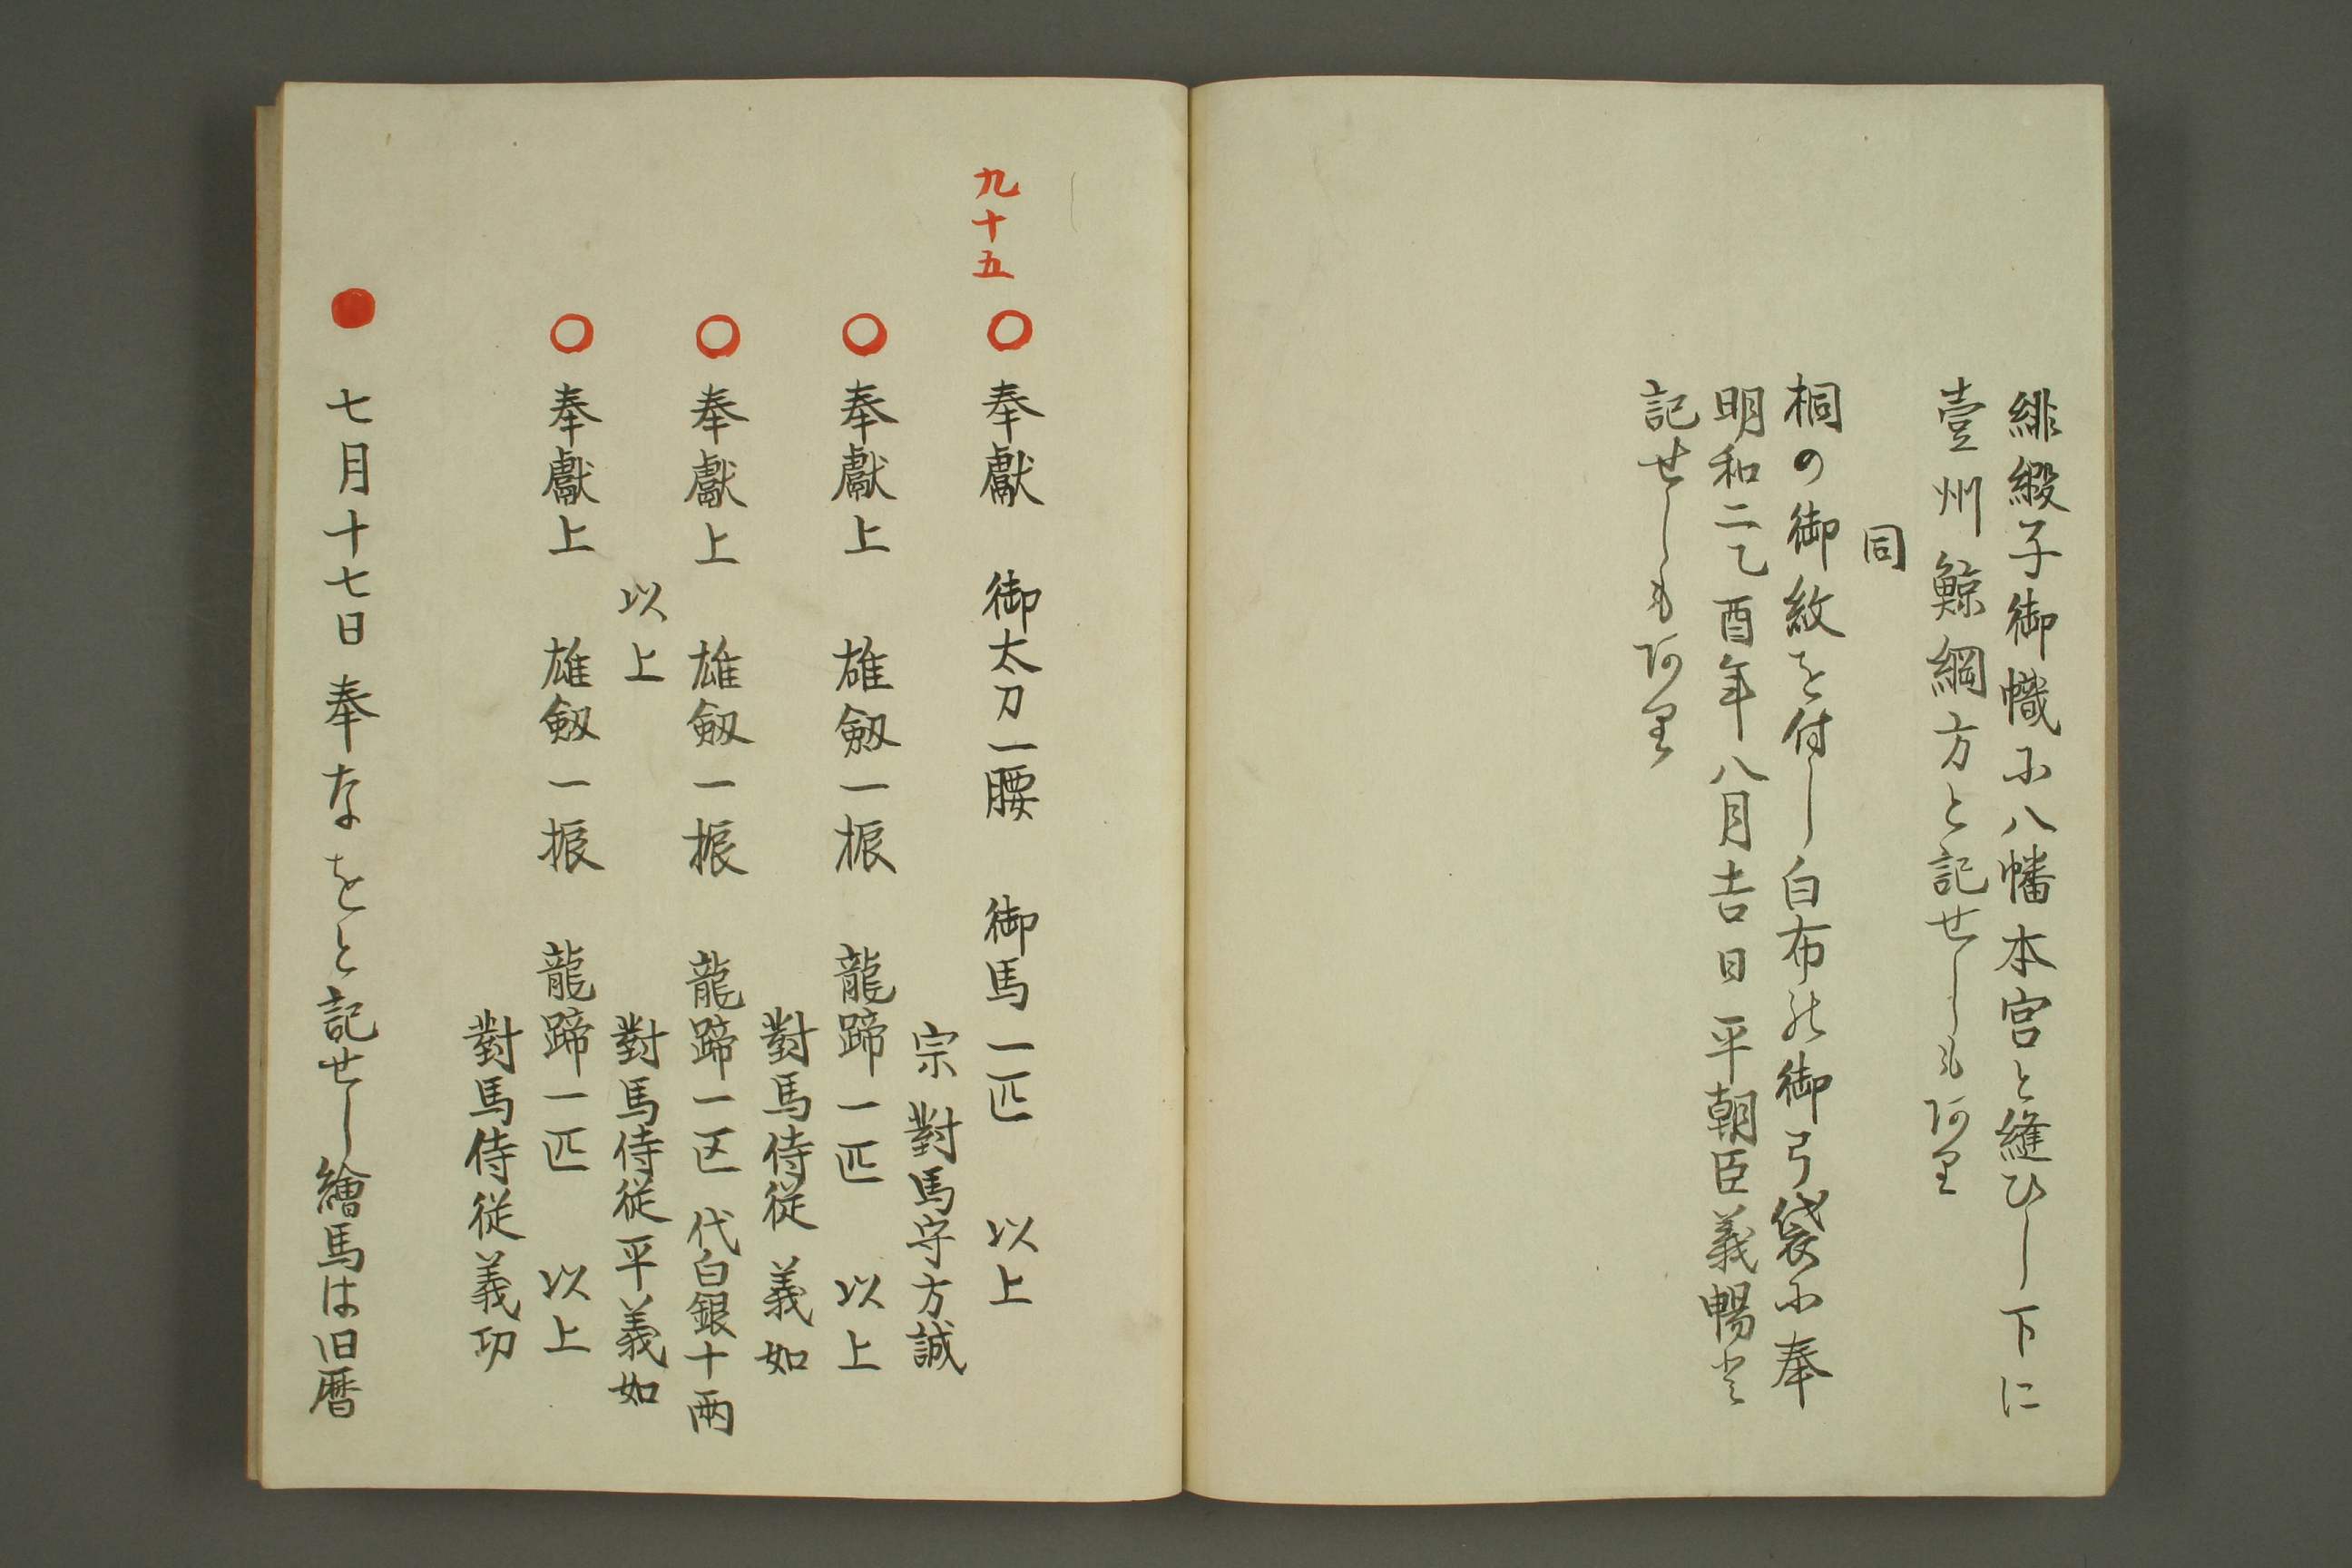 緋緞子御幟に八幡本宮と縫ひし下に
壹州鯨綱方と記せしもあり
同
桐の御紋を付し白布の御弓袋に奉
明和二乙酉年八月吉日平朝臣義暢と
記せしもあり
九十五
○奉獻　御太刀一腰　御馬一匹　以上
宗對馬守方誠
○奉獻上　雄劔一振　龍蹄一匹　以上
對馬侍従義如
○奉獻上　雄劔一振　龍蹄一匹　代白銀十两
以上　對馬侍従平義如
○奉獻上　雄劔一振　龍蹄一匹　以上
對馬侍従義功
●七月十七日奉なをと記せし繪馬は旧暦